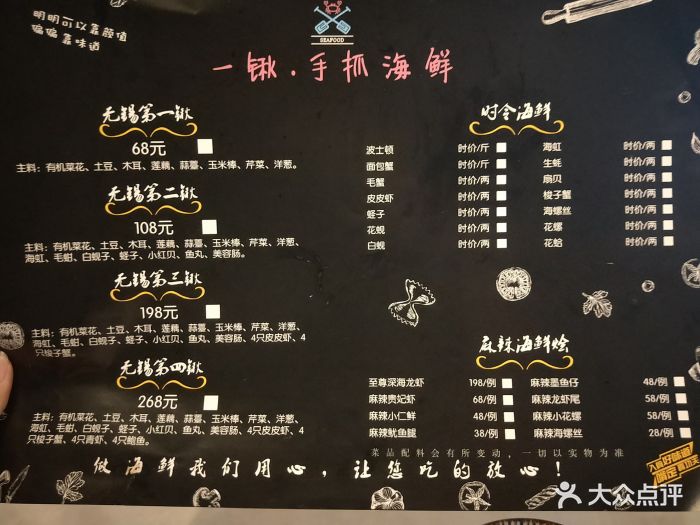 明明可以靠颜值
偏偏靠味道
SEAFOOD
一锹·手抓海鲜
无锡第一锹
68元
主料：有机菜花、土豆、木耳、莲藕、蒜薹、玉米棒、芹菜、洋葱。
无锡第二锹
108元
主料：有机菜花、土豆、木耳、莲藕、蒜薹、玉米棒、芹菜、洋葱、
海虹、毛蚶、白蚬子、蛏子、小红贝、鱼丸、美容肠。
无锡第三锹
198元
主料：有机菜花、土豆、木耳、莲藕、蒜薹、玉米棒、芹菜、洋葱、
海虹、毛蚶、白蚬子、蛏子、小红贝、鱼丸、美容肠、4只皮皮虾、4
只梭子蟹。
无锡第四锹
268元
主料：有机菜花、土豆、木耳、莲藕、蒜薹、玉米棒、芹菜、洋葱、
海虹、毛蚶、白蚬子、蛏子、小红贝、鱼丸、美容肠、4只皮皮虾、
4只梭子蟹、4只青虾、4只鲍鱼。
时令海鲜
波士顿 时价/斤 海虹 时价/两
面包蟹 时价/两 生蚝 时价/两
毛蟹 时价/两 扇贝 时价/两
皮皮虾 时价/两 梭子蟹 时价/两
蛏子 时价/两 海螺丝 时价/两
花蚬 时价/两 花螺 时价/两
白蚬 时价/两 花蛤 时价/两
麻辣海鲜烩
至尊深海龙虾 198/例 麻辣墨鱼仔 48/例
麻辣贵妃虾 68/例 麻辣龙虾尾 58/例
麻辣小仁鲜 48/例 麻辣小花螺 58/例
麻辣鱿鱼腿 38/例 麻辣海螺丝 28/例
菜品配料会有所变动，一切以实物为准
做海鲜我们用心，让您吃的放心！
大众点评